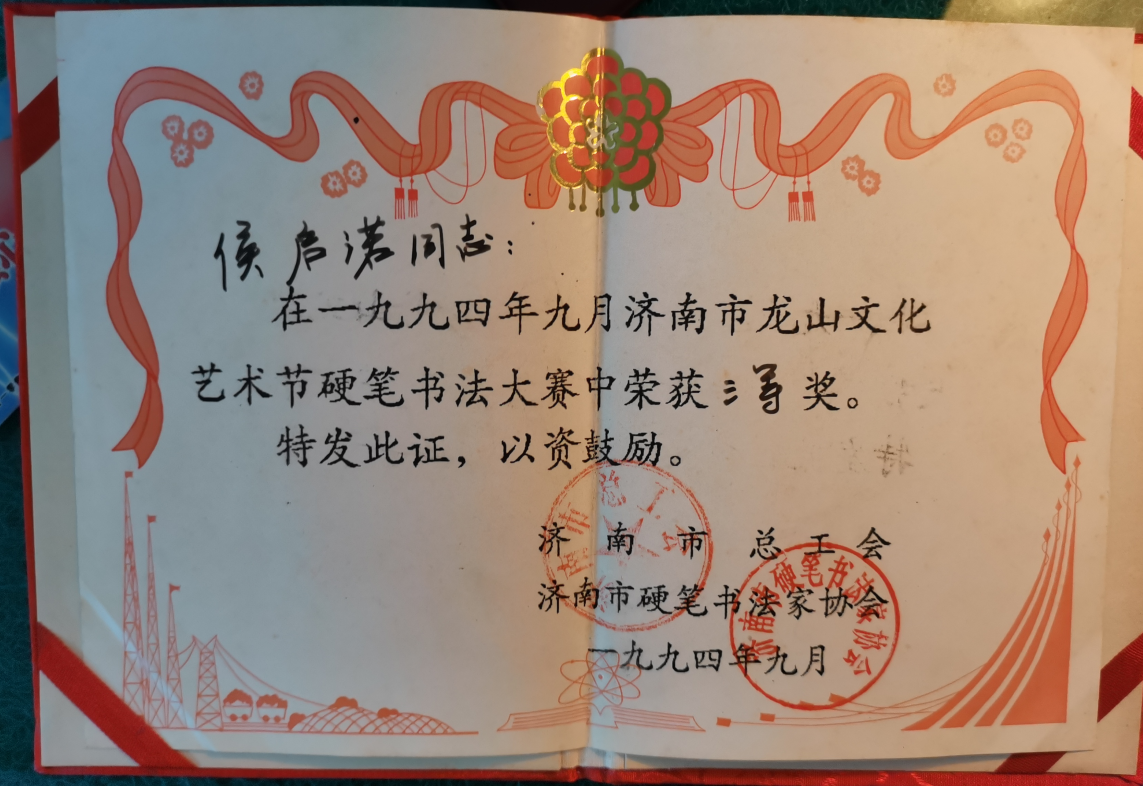 侯启诺同志：
在一九九四年九月济南市龙山文化
艺术节硬笔书法大赛中荣获三等奖。
特发此证，以资鼓励。
济南市总工会
济南市硬笔书法家协会
一九九四年九月
济南市总工会
济南市硬笔书法家协会